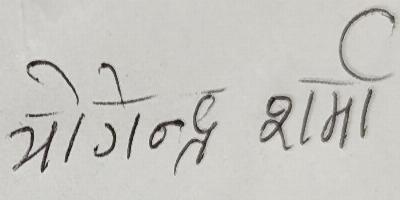 योगेन्द्र शर्मा